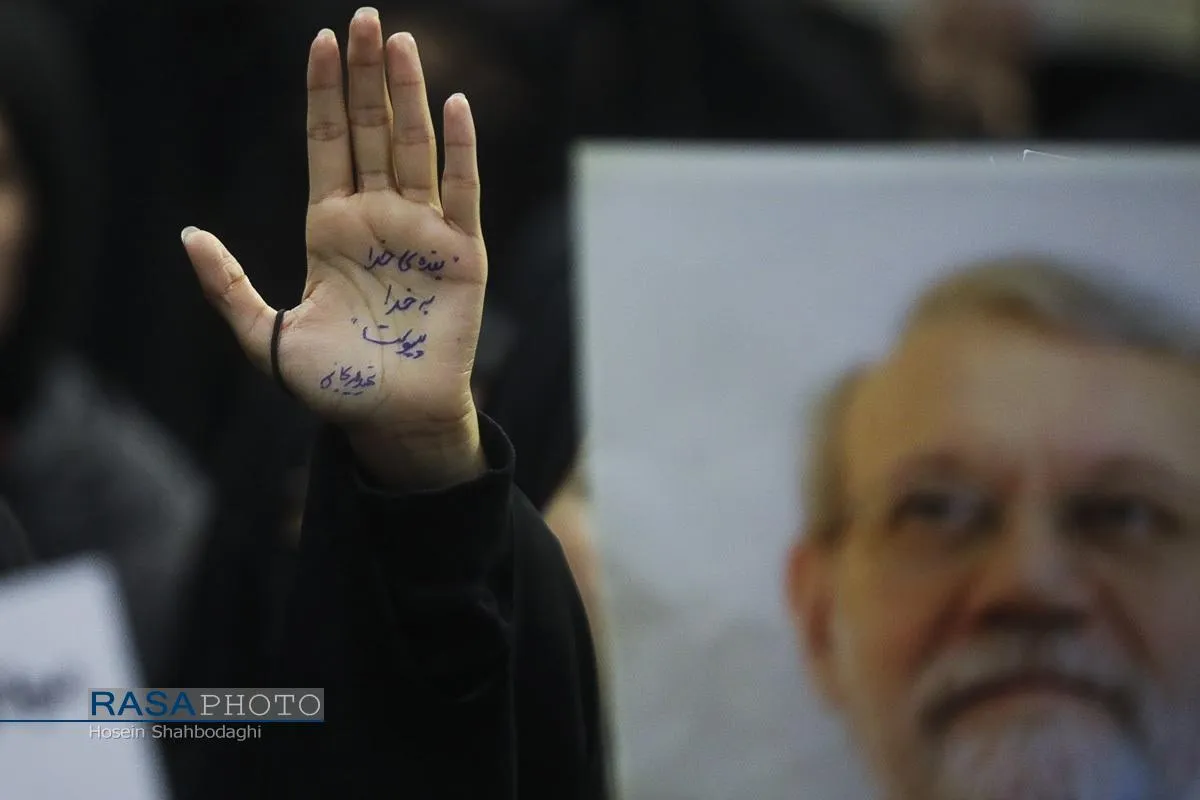 بنده‌ی خدا
به خدا
پیوست
RASAPHOTO
Hosein Shahbodaghi